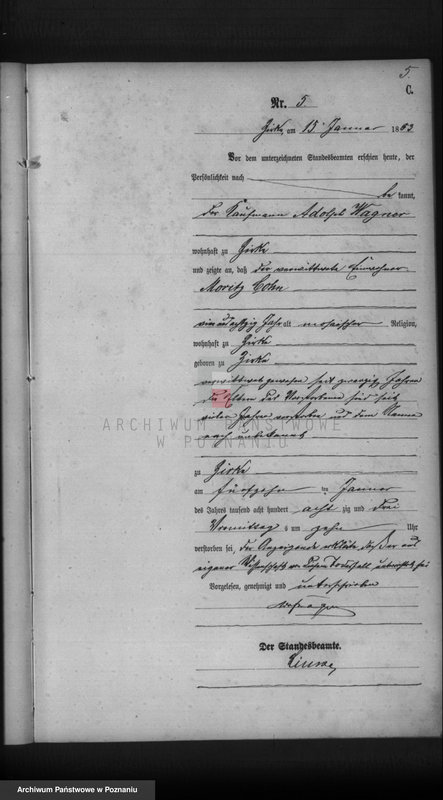 5.
C.
Nr. 5.
Zirke, am 15 Januar 1883.
Vor dem unterzeichneten Standesbeamten erschien heute, der
Persönlichkeit nach
be kannt,
der Kaufmann Adolph Wagner
wohnhaft zu Zirke
und zeigte an, daß der verwittwete Einwohner
Moritz Cohn
Jahr alt mosaischer Religion,
wohnhaft zu Zirke
geboren zu Zirke
verwittwet gewesen seit zwanzig Jahren
die Eltern des Verstorbenen sind seit
vielen Jahren verstorben und dem Namen
nach unbekannt
ARCHIWUM PAŃSTWOWE
W POZNANIU
zu Zirke
am fünfzehn ten Januar
des Jahres tausend acht hundert acht zig und drei
Vormittag s um zehn Uhr
verstorben sei, der Anzeigende erklärte, daß er aus
eigener Wissenschaft von diesem Todesfall unterrichtet sei
Vorgelesen, genehmigt und unterschrieben
Der Standesbeamte.
Archiwum Państwowe w Poznaniu